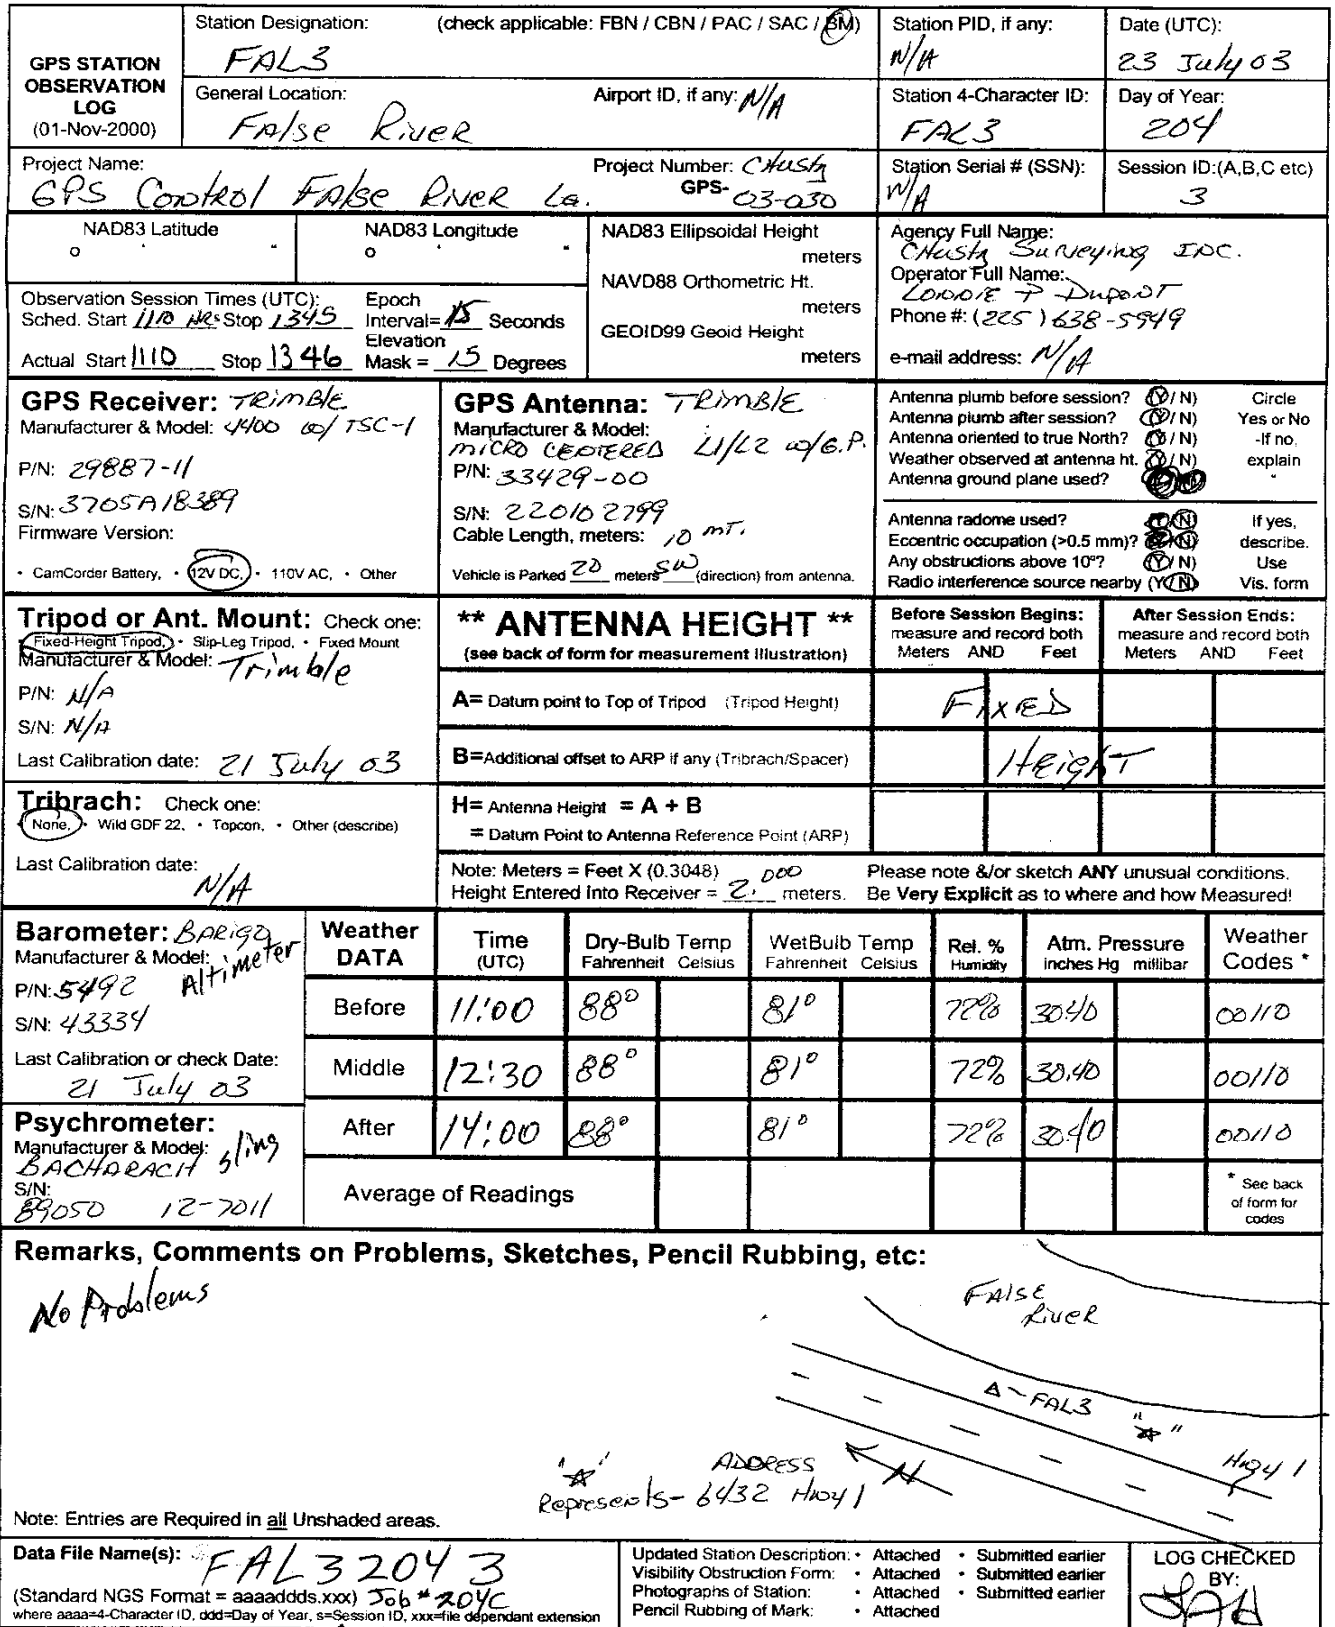 GPS STATION
OBSERVATION
LOG
(01-Nov-2000)
Station Designation: (check applicable: FBN / CBN / PAC / SAC / BM)
FAL3
Station PID, if any:
N/A
Date (UTC):
23 July 03
General Location:
False River
Airport ID, if any: N/A
Station 4-Character ID:
FAL3
Day of Year:
204
Project Name:
GPS Control False River La.
Project Number: CHustz
GPS- 03-030
Station Serial # (SSN):
N/A
Session ID:(A,B,C etc)
3
NAD83 Latitude
o ' "
NAD83 Longitude
o ' "
NAD83 Ellipsoidal Height
meters
NAVD88 Orthometric Ht.
meters
GEOID99 Geoid Height
meters
Agency Full Name:
CHustz Surveying INC.
Operator Full Name:
LONNIE P DUPONT
Phone #: (225) 638-5949
e-mail address: N/A
Observation Session Times (UTC):
Sched. Start 1110 Hrs Stop 1345
Actual Start 1110 Stop 1346
Epoch
Interval= 15 Seconds
Elevation
Mask = 15 Degrees
GPS Receiver: TRimBlE
Manufacturer & Model: 4400 w/ TSC-1
P/N: 29887-11
S/N: 3705A18389
Firmware Version:
• CamCorder Battery, • 12V DC, • 110V AC, • Other
GPS Antenna: TRimBlE
Manufacturer & Model:
MICRO CENTERED L1/L2 w/G.P.
P/N: 33429-00
S/N: 220102799
Cable Length, meters: 10 mT.
Vehicle is Parked 20 meters SW (direction) from antenna.
Antenna plumb before session? (Y / N)
Antenna plumb after session? (Y / N)
Antenna oriented to true North? (Y / N)
Weather observed at antenna ht. (Y / N)
Antenna ground plane used?
Circle
Yes or No
-If no,
explain
"
Antenna radome used? (Y / N)
Eccentric occupation (>0.5 mm)? (Y / N)
Any obstructions above 10°? (Y / N)
Radio interference source nearby (Y / N)
If yes,
describe.
Use
Vis. form
Tripod or Ant. Mount: Check one:
Fixed-Height Tripod, • Slip-Leg Tripod, • Fixed Mount
Manufacturer & Model: Trimble
P/N: N/A
S/N: N/A
Last Calibration date: 21 July 03
** ANTENNA HEIGHT **
(see back of form for measurement illustration)
Before Session Begins:
measure and record both
Meters AND Feet
After Session Ends:
measure and record both
Meters AND Feet
A= Datum point to Top of Tripod (Tripod Height)
FIXED
B=Additional offset to ARP if any (Tribrach/Spacer)
HEIGHT
Tribrach: Check one:
None, • Wild GDF 22, • Topcon, • Other (describe)
Last Calibration date:
N/A
H= Antenna Height = A + B
= Datum Point to Antenna Reference Point (ARP)
Note: Meters = Feet X (0.3048)
Height Entered Into Receiver = 2.000 meters.
Please note &/or sketch ANY unusual conditions.
Be Very Explicit as to where and how Measured!
Barometer: BARIGO
Manufacturer & Model: Altimeter
P/N: 5492
S/N: 43334
Last Calibration or check Date:
21 July 03
Psychrometer:
Manufacturer & Model: sling
BACHARACH
S/N:
89050 12-7011
Weather DATA Time (UTC) Dry-Bulb Temp Fahrenheit Celsius WetBulb Temp Fahrenheit Celsius Rel. % Humidity Atm. Pressure inches Hg millibar Weather Codes *
Before 11:00 88° 81° 72% 30.40 00110
Middle 12:30 88° 81° 72% 30.40 00110
After 14:00 88° 81° 72% 30.40 00110
Average of Readings
* See back
of form for
codes
Remarks, Comments on Problems, Sketches, Pencil Rubbing, etc:
No Problems
FAlSE
RiveR
FAL3
Hwy 1
N
ADDRESS
Represents- 6432 Hwy 1
Note: Entries are Required in all Unshaded areas.
Data File Name(s): FAL32043
(Standard NGS Format = aaaaddds.xxx) Job # 204C
where aaaa=4-Character ID, ddd=Day of Year, s=Session ID, xxx=file dependant extension
Updated Station Description: • Attached • Submitted earlier
Visibility Obstruction Form: • Attached • Submitted earlier
Photographs of Station: • Attached • Submitted earlier
Pencil Rubbing of Mark: • Attached
LOG CHECKED
BY: